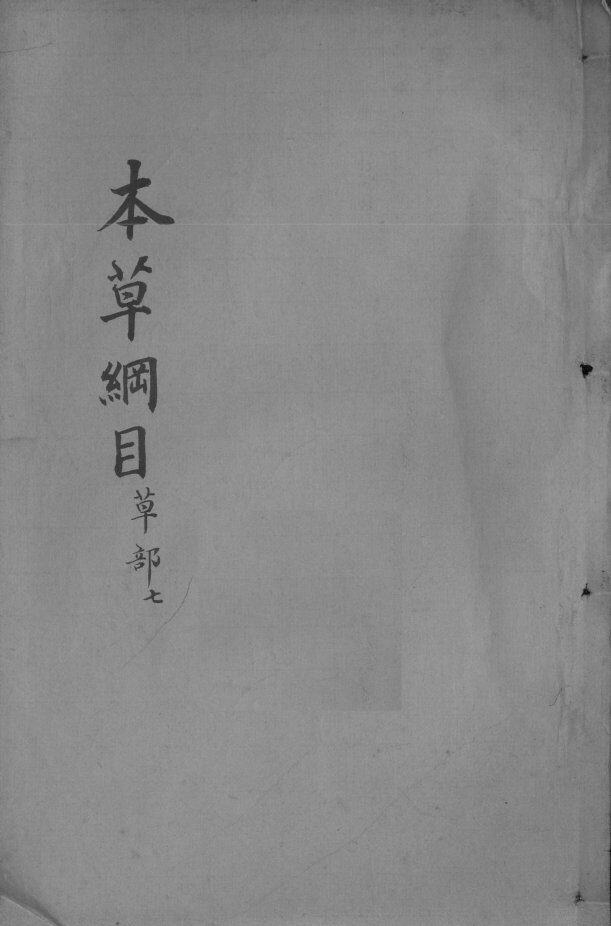 本草綱目草部七